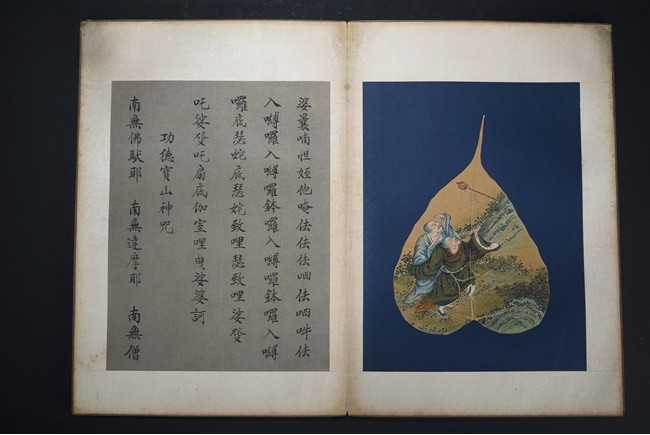 娑曩喃怛姪他唵佉佉佉呬佉呬吽佉
入嚩囉入嚩囉鉢囉入嚩囉鉢囉入嚩
囉底瑟姹底瑟姹致哩瑟致哩娑癹
吒娑癹吒扇底伽室哩曳娑婆訶
功德寶山神咒
南無佛馱耶　南無達摩耶　南無僧